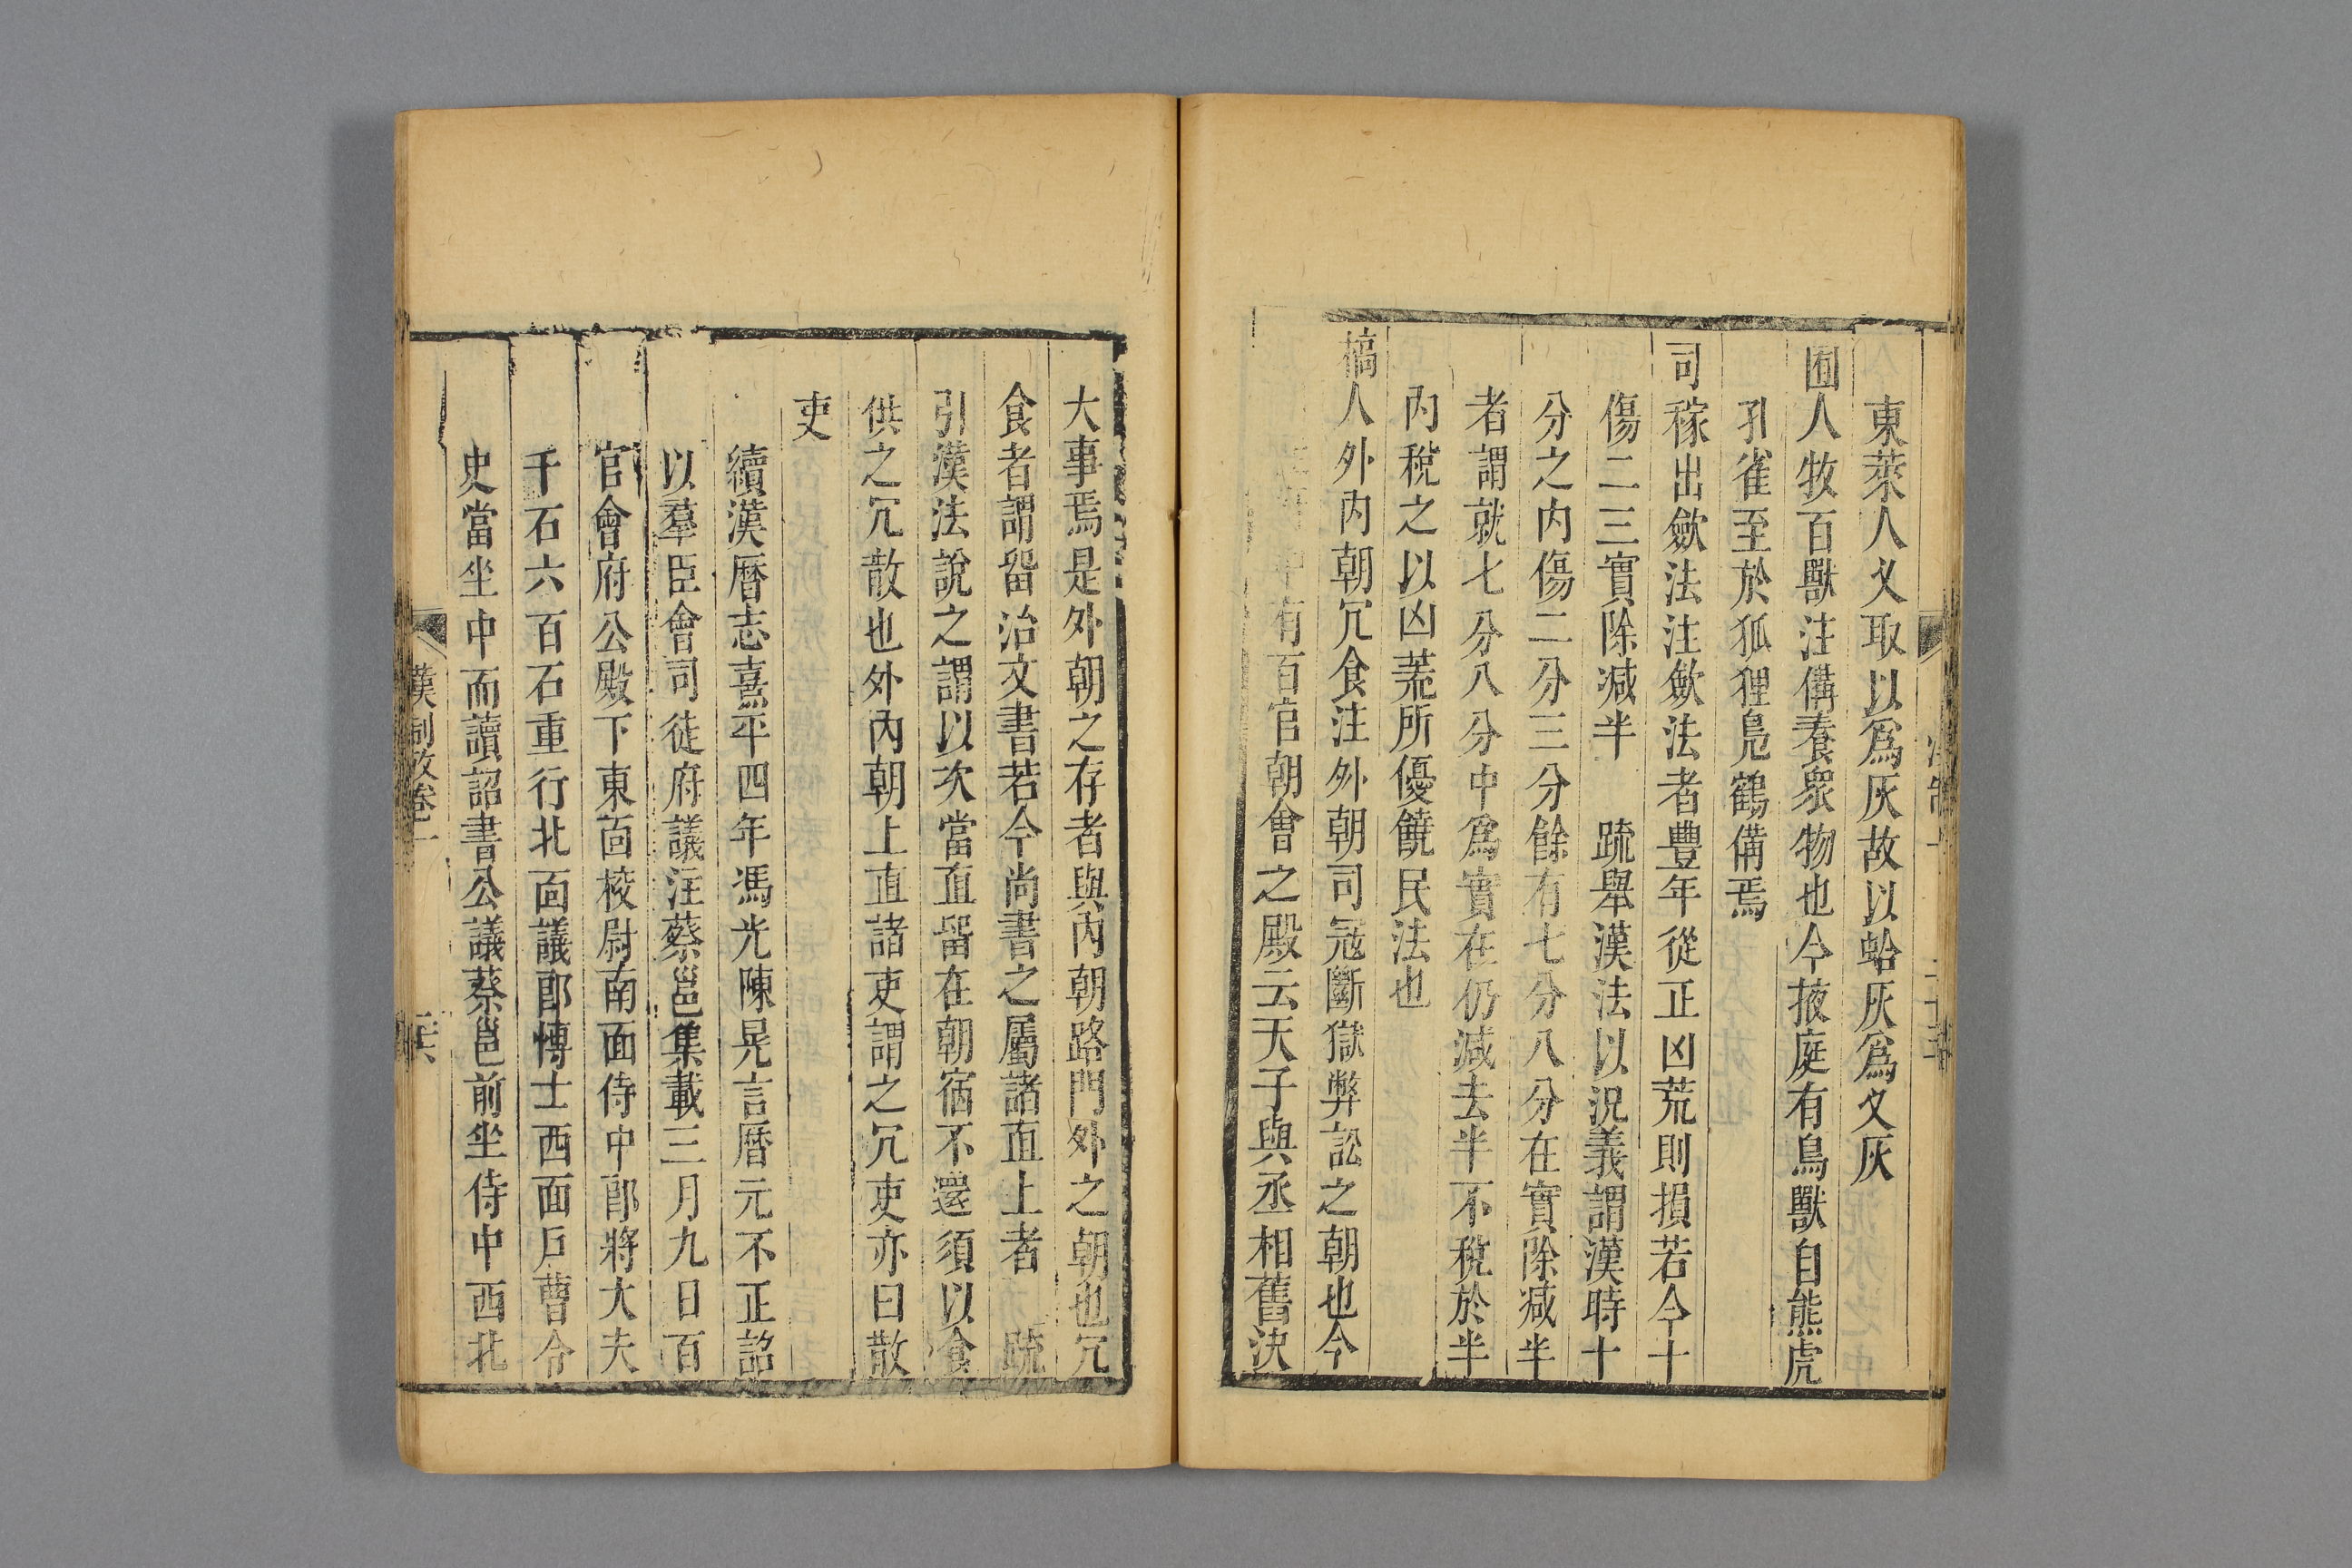 東萊人叉取以爲灰故以蛤灰爲叉灰
囿人牧百獸注備養衆物也今掖庭有鳥獸自熊虎
孔雀至於狐狸鳧鶴備焉
司稼出斂法注斂法者豐年從正凶荒則損若今十
傷二三實除減半 疏舉漢法以況義謂漢時十
分之內傷二分三分餘有七分八分在實除減半
者謂就七分八分中爲實在仍減去半不稅於半
內稅之以凶荒所優饒民法也
槁人外內朝冗食注外朝司冦斷獄弊訟之朝也今
有百官朝會之殿云天子與丞相舊決
大事焉是外朝之存者與內朝路門外之朝也冗
食者謂留治文書若今尚書之屬諸直上者 疏
引漢法說之謂以次當直留在朝宿不還須以食
供之冗散也外內朝上直諸吏謂之冗吏亦曰散
吏
續漢曆志熹平四年馮光陳晃言曆元不正詔
以羣臣會司徒府議注蔡邕集載三月九日百
官會府公殿下東面校尉南面侍中郎將大夫
千石六百石重行北面議郎博士西面戶曹令
史當坐中而讀詔書公議蔡邕前坐侍中西北
漢制攷卷二